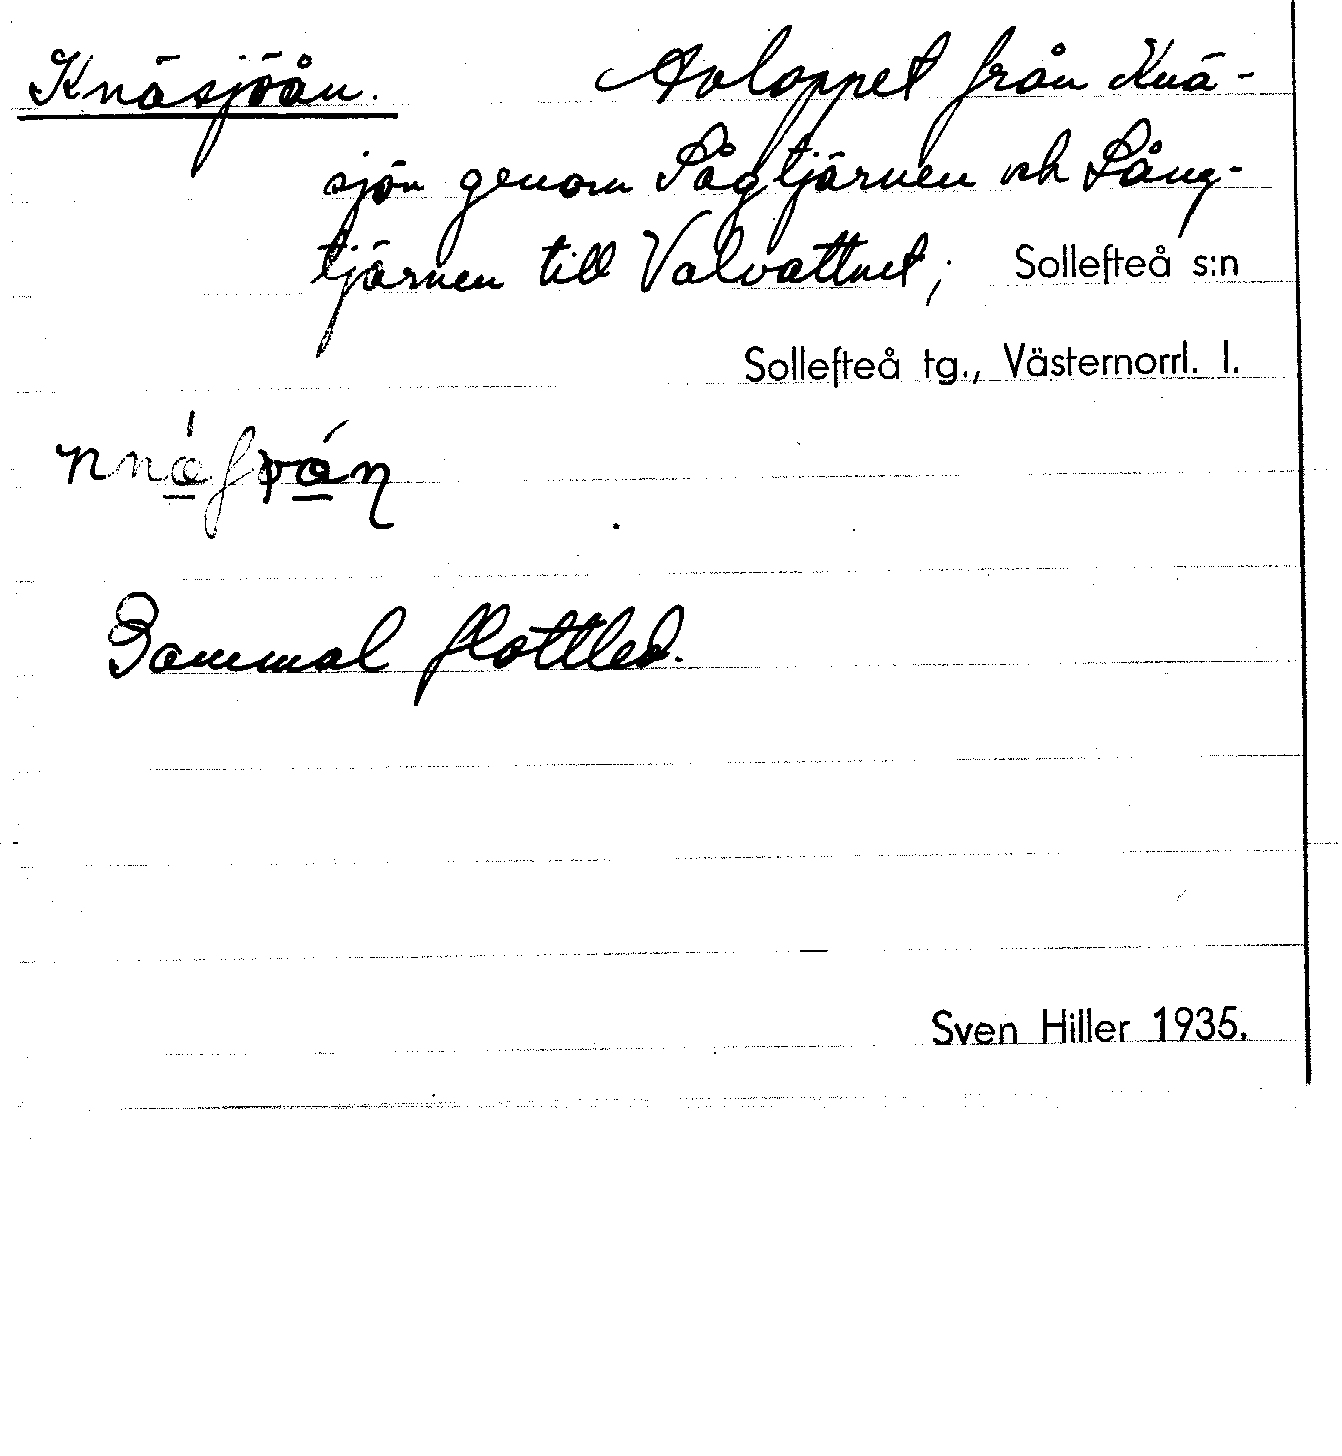 Knäsjöån. Avloppet från Knä-
sjön genom Sågtjärnen och Lång-
tjärnen till Valvattnet; Sollefteå s:n
Sollefteå tg., Västernorrl. l.
Gammal flottled.
Sven Hiller 1935.